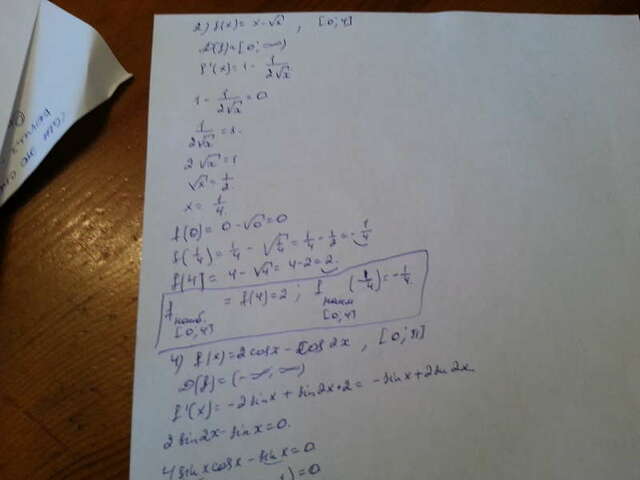 2) f(x)= x-√x , [0;4]
D(f)=[0;∞)
f'(x)=1- 1/(2√x)
1- 1/(2√x)=0
1/(2√x)=1.
2√x=1
√x=1/2.
x= 1/4.
f(0)= 0-√0=0
f(1/4)=1/4-√(1/4)=1/4-1/2=-1/4
f(4]= 4-√4=4-2=2.
f наиб. [0;4] = f(4)=2; f наим [0;4] (1/4)=-1/4.
4) f(x)=2cosx-cos2x , [0;π]
D(f)=(-∞;∞)
f'(x)= -2sinx+sin2x·2= -sinx+2sin2x
2sin2x-sinx=0.
4sinxcosx-sinx=0
)=0